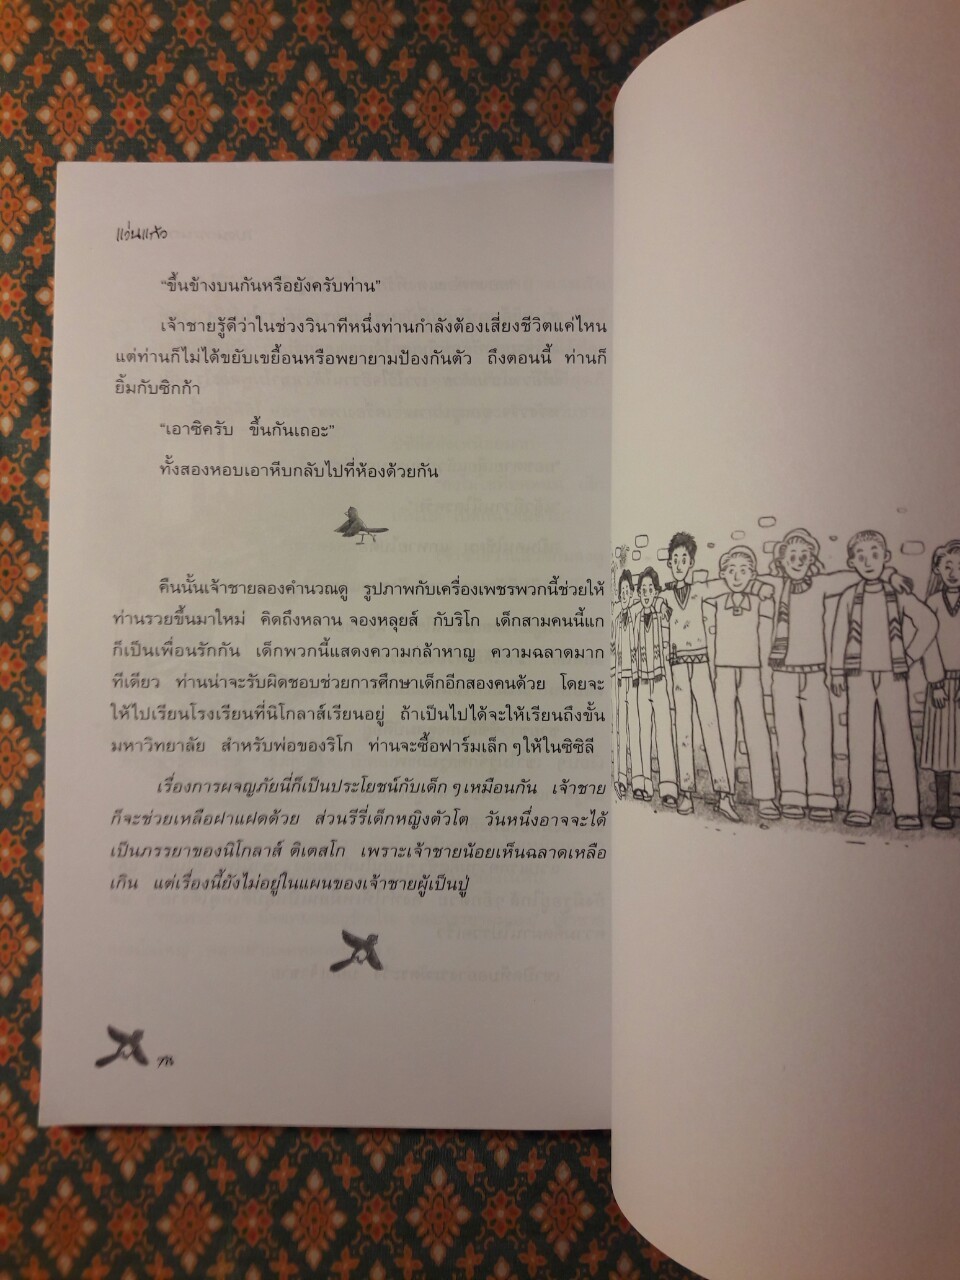 แว่นแก้ว
“ขึ้นข้างบนกันหรือยังครับท่าน”
เจ้าชายรู้ดีว่าในช่วงวินาทีหนึ่งท่านกำลังต้องเสี่ยงชีวิตแค่ไหน
แต่ท่านก็ไม่ได้ขยับเขยื้อนหรือพยายามป้องกันตัว ถึงตอนนี้ ท่านก็
ยิ้มกับซิกก้า
“เอาซิครับ ขึ้นกันเถอะ”
ทั้งสองหอบเอาหีบกลับไปที่ห้องด้วยกัน
คืนนั้นเจ้าชายลองคำนวณดู รูปภาพกับเครื่องเพชรพวกนี้ช่วยให้
ท่านรวยขึ้นมาใหม่ คิดถึงหลาน จองหลุยส์ กับริโก เด็กสามคนนี้แก
ก็เป็นเพื่อนรักกัน เด็กพวกนี้แสดงความกล้าหาญ ความฉลาดมาก
ทีเดียว ท่านน่าจะรับผิดชอบช่วยการศึกษาเด็กอีกสองคนด้วย โดยจะ
ให้ไปเรียนโรงเรียนที่นิโกลาส์เรียนอยู่ ถ้าเป็นไปได้จะให้เรียนถึงขั้น
มหาวิทยาลัย สำหรับพ่อของริโก ท่านจะซื้อฟาร์มเล็กๆให้ในซิซิลี
เรื่องการผจญภัยนี่ก็เป็นประโยชน์กับเด็กๆเหมือนกัน เจ้าชาย
ก็จะช่วยเหลือฝาแฝดด้วย ส่วนรีรี่เด็กหญิงตัวโต วันหนึ่งอาจจะได้
เป็นภรรยาของนิโกลาส์ ติเตสโก เพราะเจ้าชายน้อยเห็นฉลาดเหลือ
เกิน แต่เรื่องนี้ยังไม่อยู่ในแผนของเจ้าชายผู้เป็นปู่